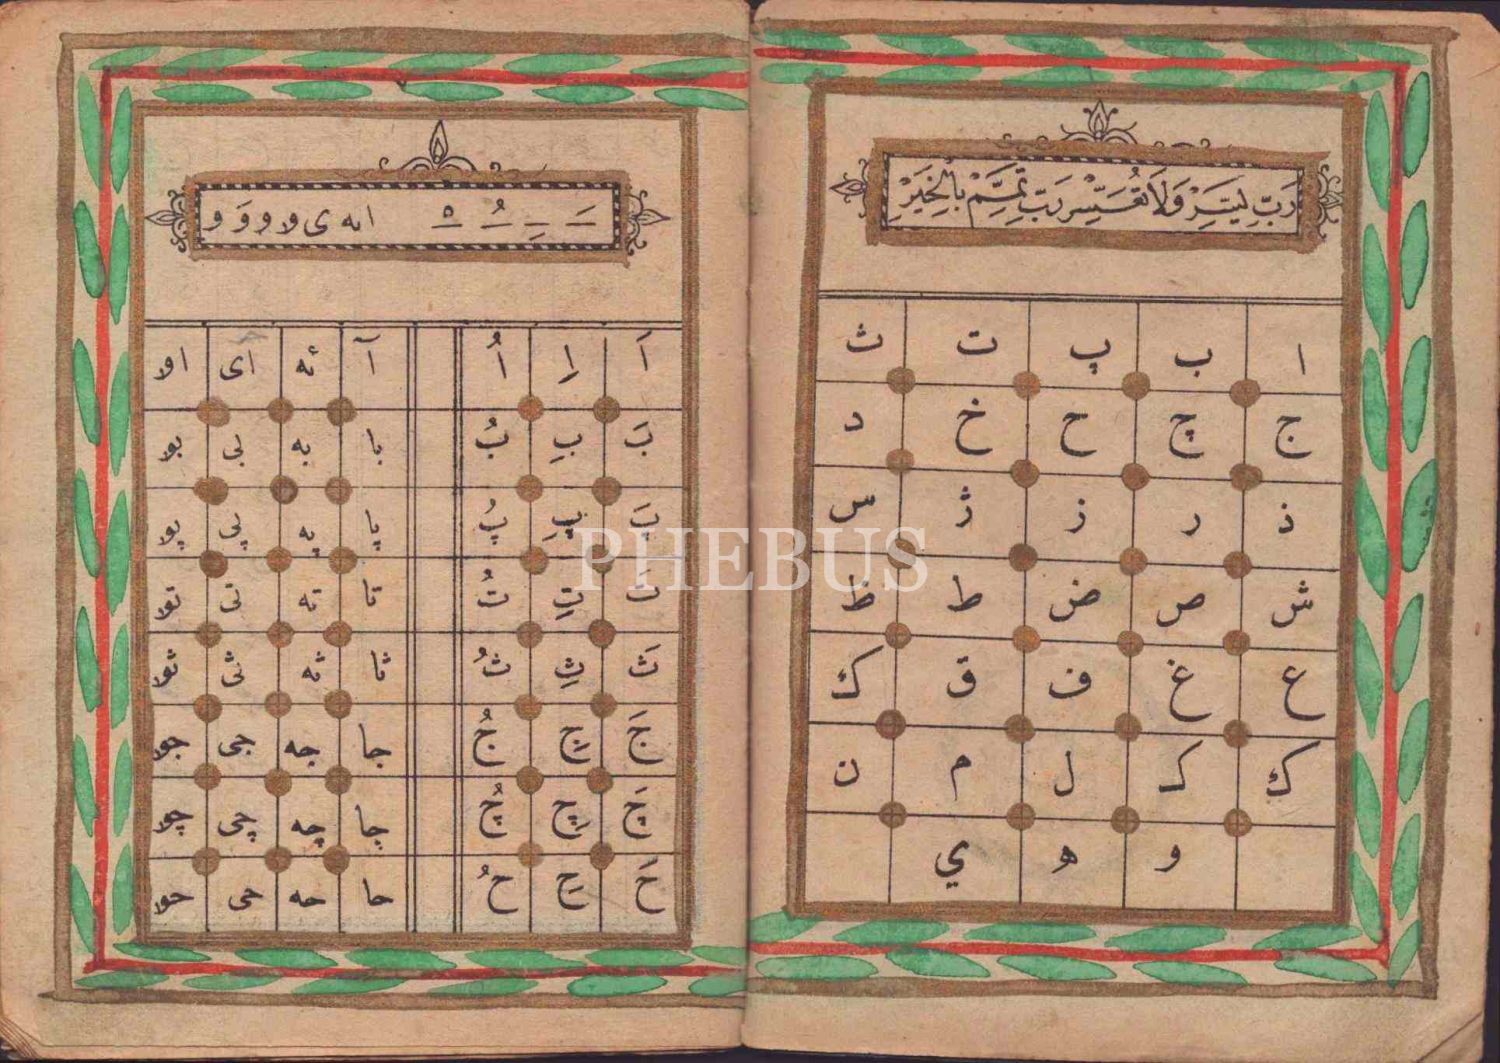 رَبِّ يَسِّرْ وَلَا تُعَسِّرْ رَبِّ تَمِّمْ بِالْخَيْرِ
ا ب پ ت ث
ج چ ح خ د
ذ ر ز ژ س
ش ص ض ط ظ
ع غ ف ق ك
ك ک ل م ن
و ه ي
ـَ ـِ ـُ ـْ ا ه ی و و وَ و
اَ اِ اُ آ ئه ای او
بَ بِ بُ با به بی بو
پَ پِ پُ پا په پی پو
تَ تِ تُ تا ته تی تو
ثَ ثِ ثُ ثا ثه ثی ثو
جَ جِ جُ جا جه جی جو
چَ چِ چُ چا چه چی چو
حَ حِ حُ حا حه حی حو
PHEBUS